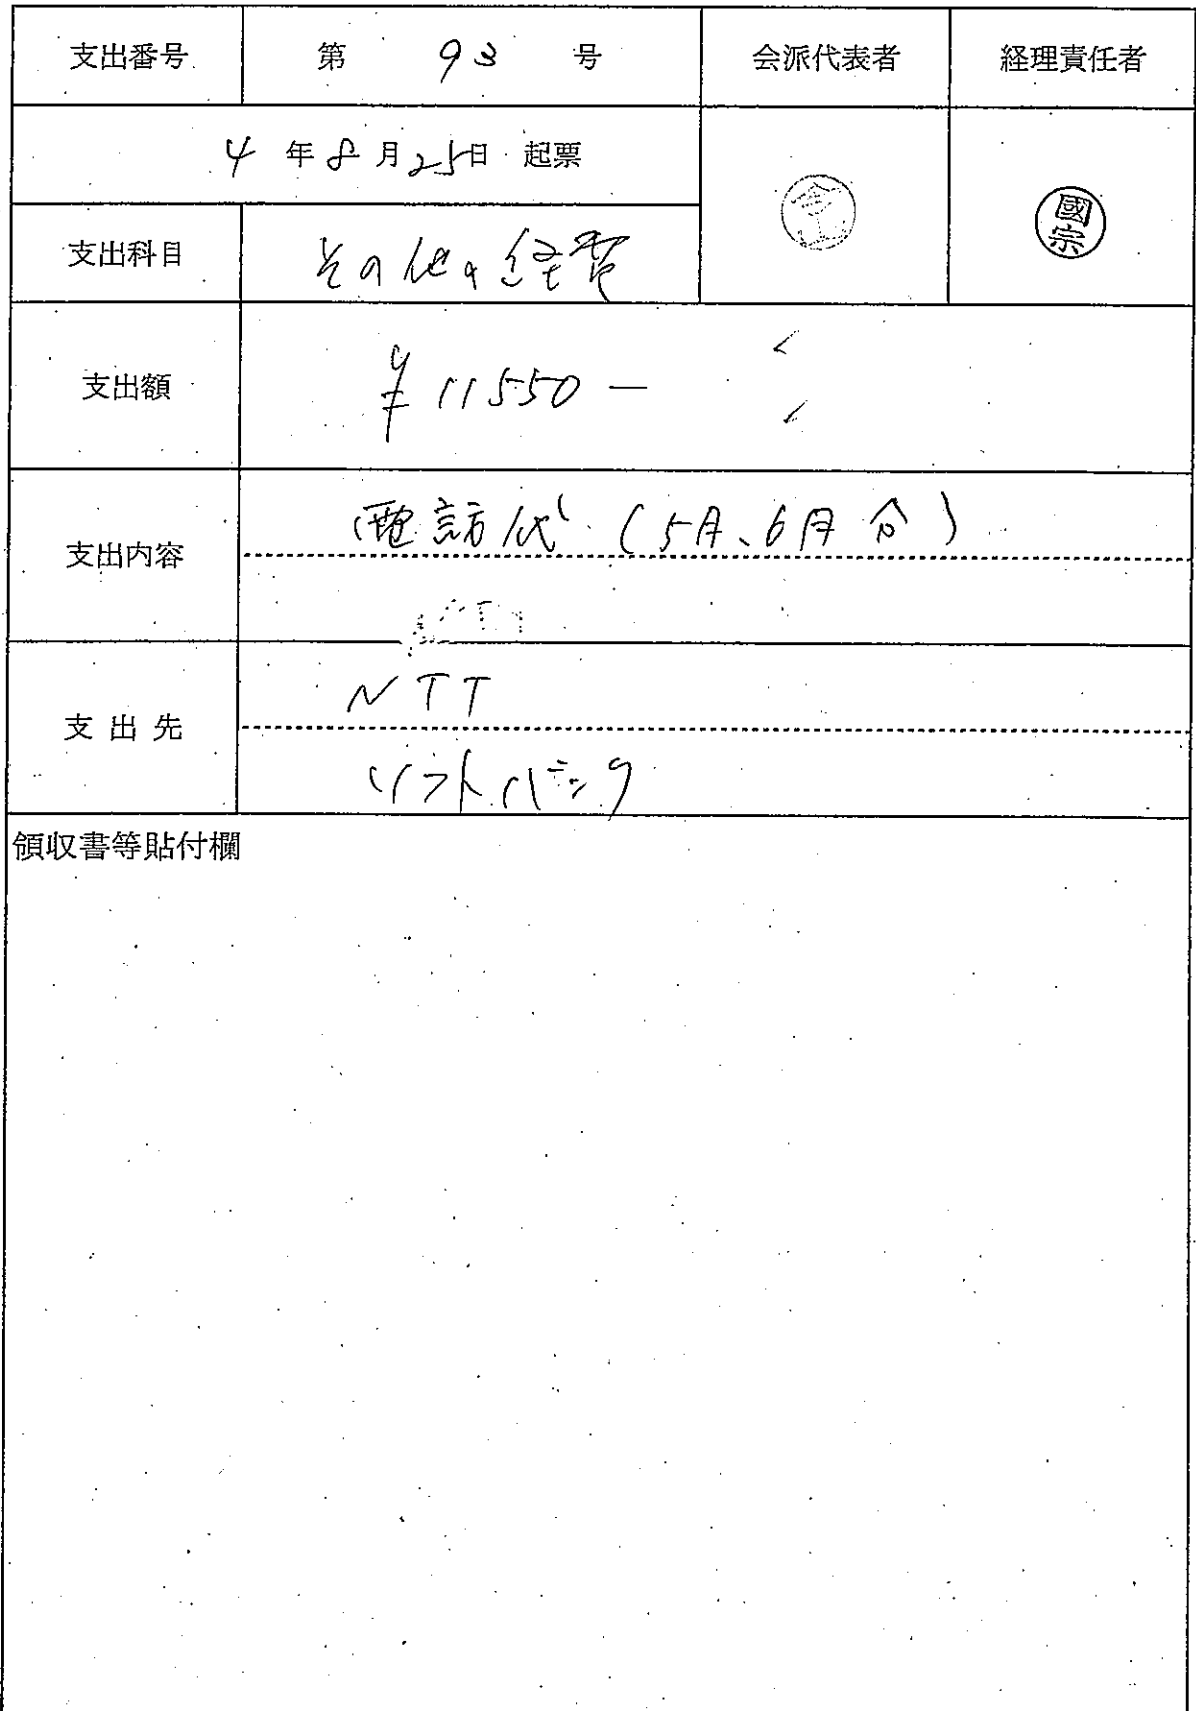 支出番号 第 93 号 会派代表者 経理責任者
4 年 8 月 25 日 起票
國宗
支出科目 その他の経費
支出額 ¥11550−
支出内容 電話代 (5月、6月分)
支出先 NTT
ソフトバンク
領収書等貼付欄